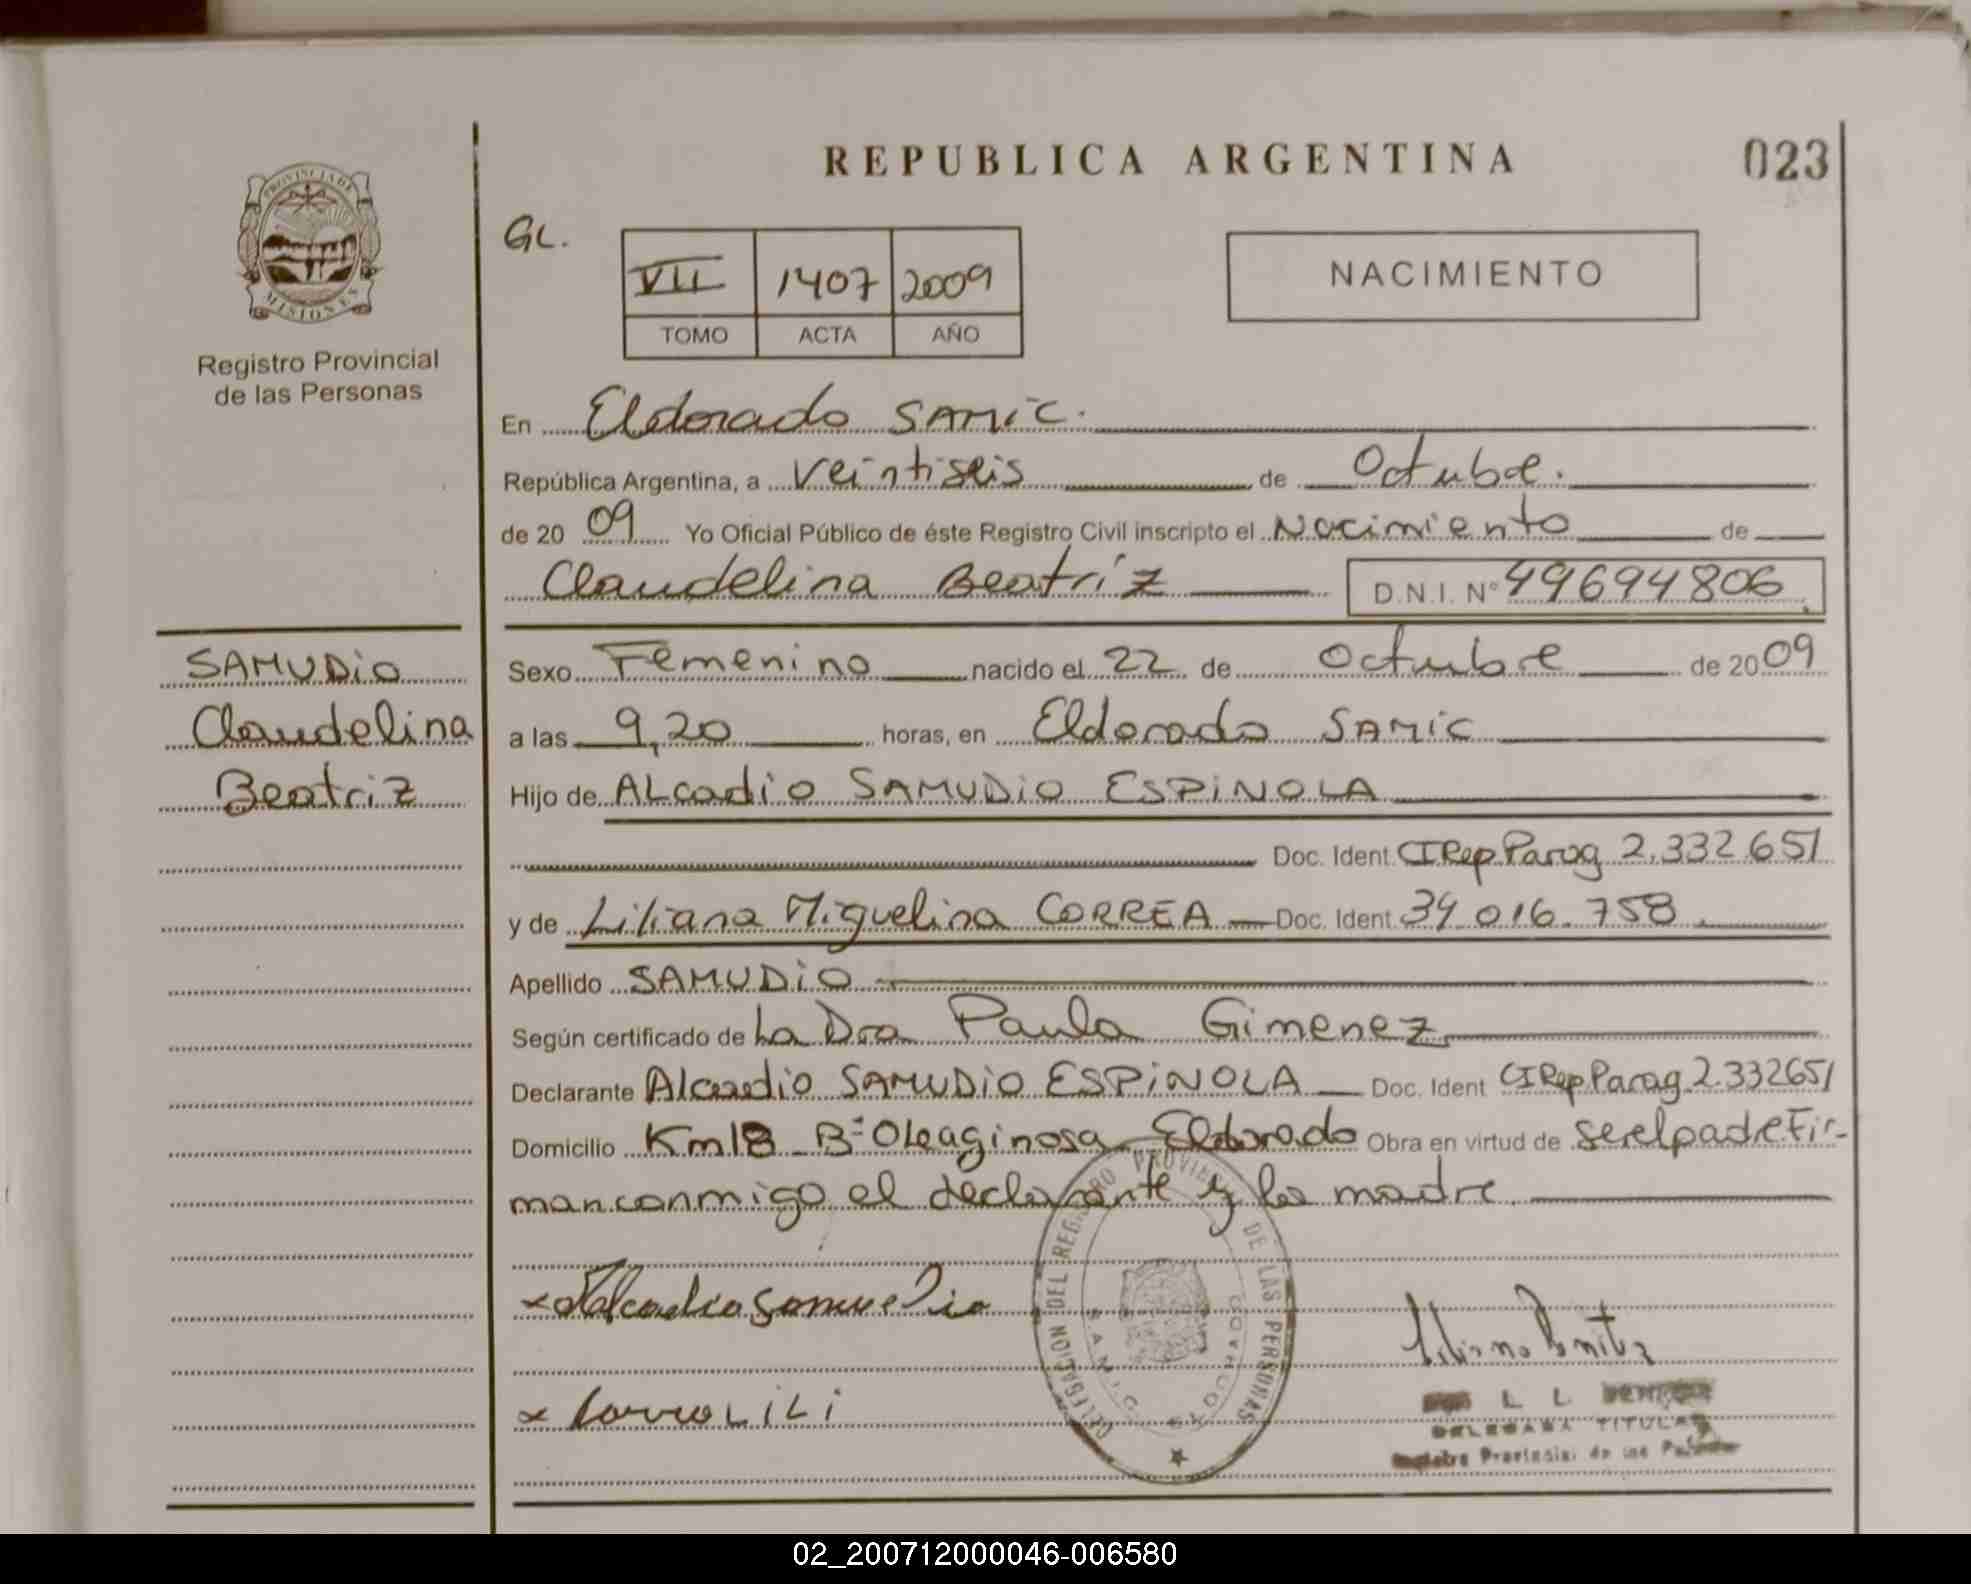 REPUBLICA ARGENTINA
023
PROVINCIA DE
MISIONES
Registro Provincial
de las Personas
GL.
VII 1407 2009
TOMO ACTA AÑO
NACIMIENTO
En Eldorado SAMIC.
República Argentina, a Veintiseis de Octubre.
de 2009 Yo Oficial Público de éste Registro Civil inscripto el Nacimiento de
Claudelina Beatríz D.N.I. N° 49694806
SAMUDIO
Claudelina
Beatriz
Sexo Femenino nacido el 22 de Octubre de 2009
a las 9,20 horas, en Eldorado SAMIC
Hijo de ALcadio SAMUDIO ESPINOLA
Doc. Ident. CI Rep Parag 2.332.651
y de Liliana Miguelina CORREA Doc. Ident. 34.016.758
Apellido SAMUDIO
Según certificado de La Dra Paula Gimenez
Declarante Alcadio SAMUDIO ESPINOLA Doc. Ident CI Rep Parag 2.332651
Domicilio Km18 B° Oleaginosa Eldorado Obra en virtud de ser el padre Fir-
man conmigo el declarante y la madre
DELEGACION DEL REGISTRO PROVINCIAL DE LAS PERSONAS
SAMIC
ELDORADO
x Alcadio Samudio
x Correa LiLi
DELEGADA TITULAR
Registro Provincial de las Personas
02_200712000046-006580